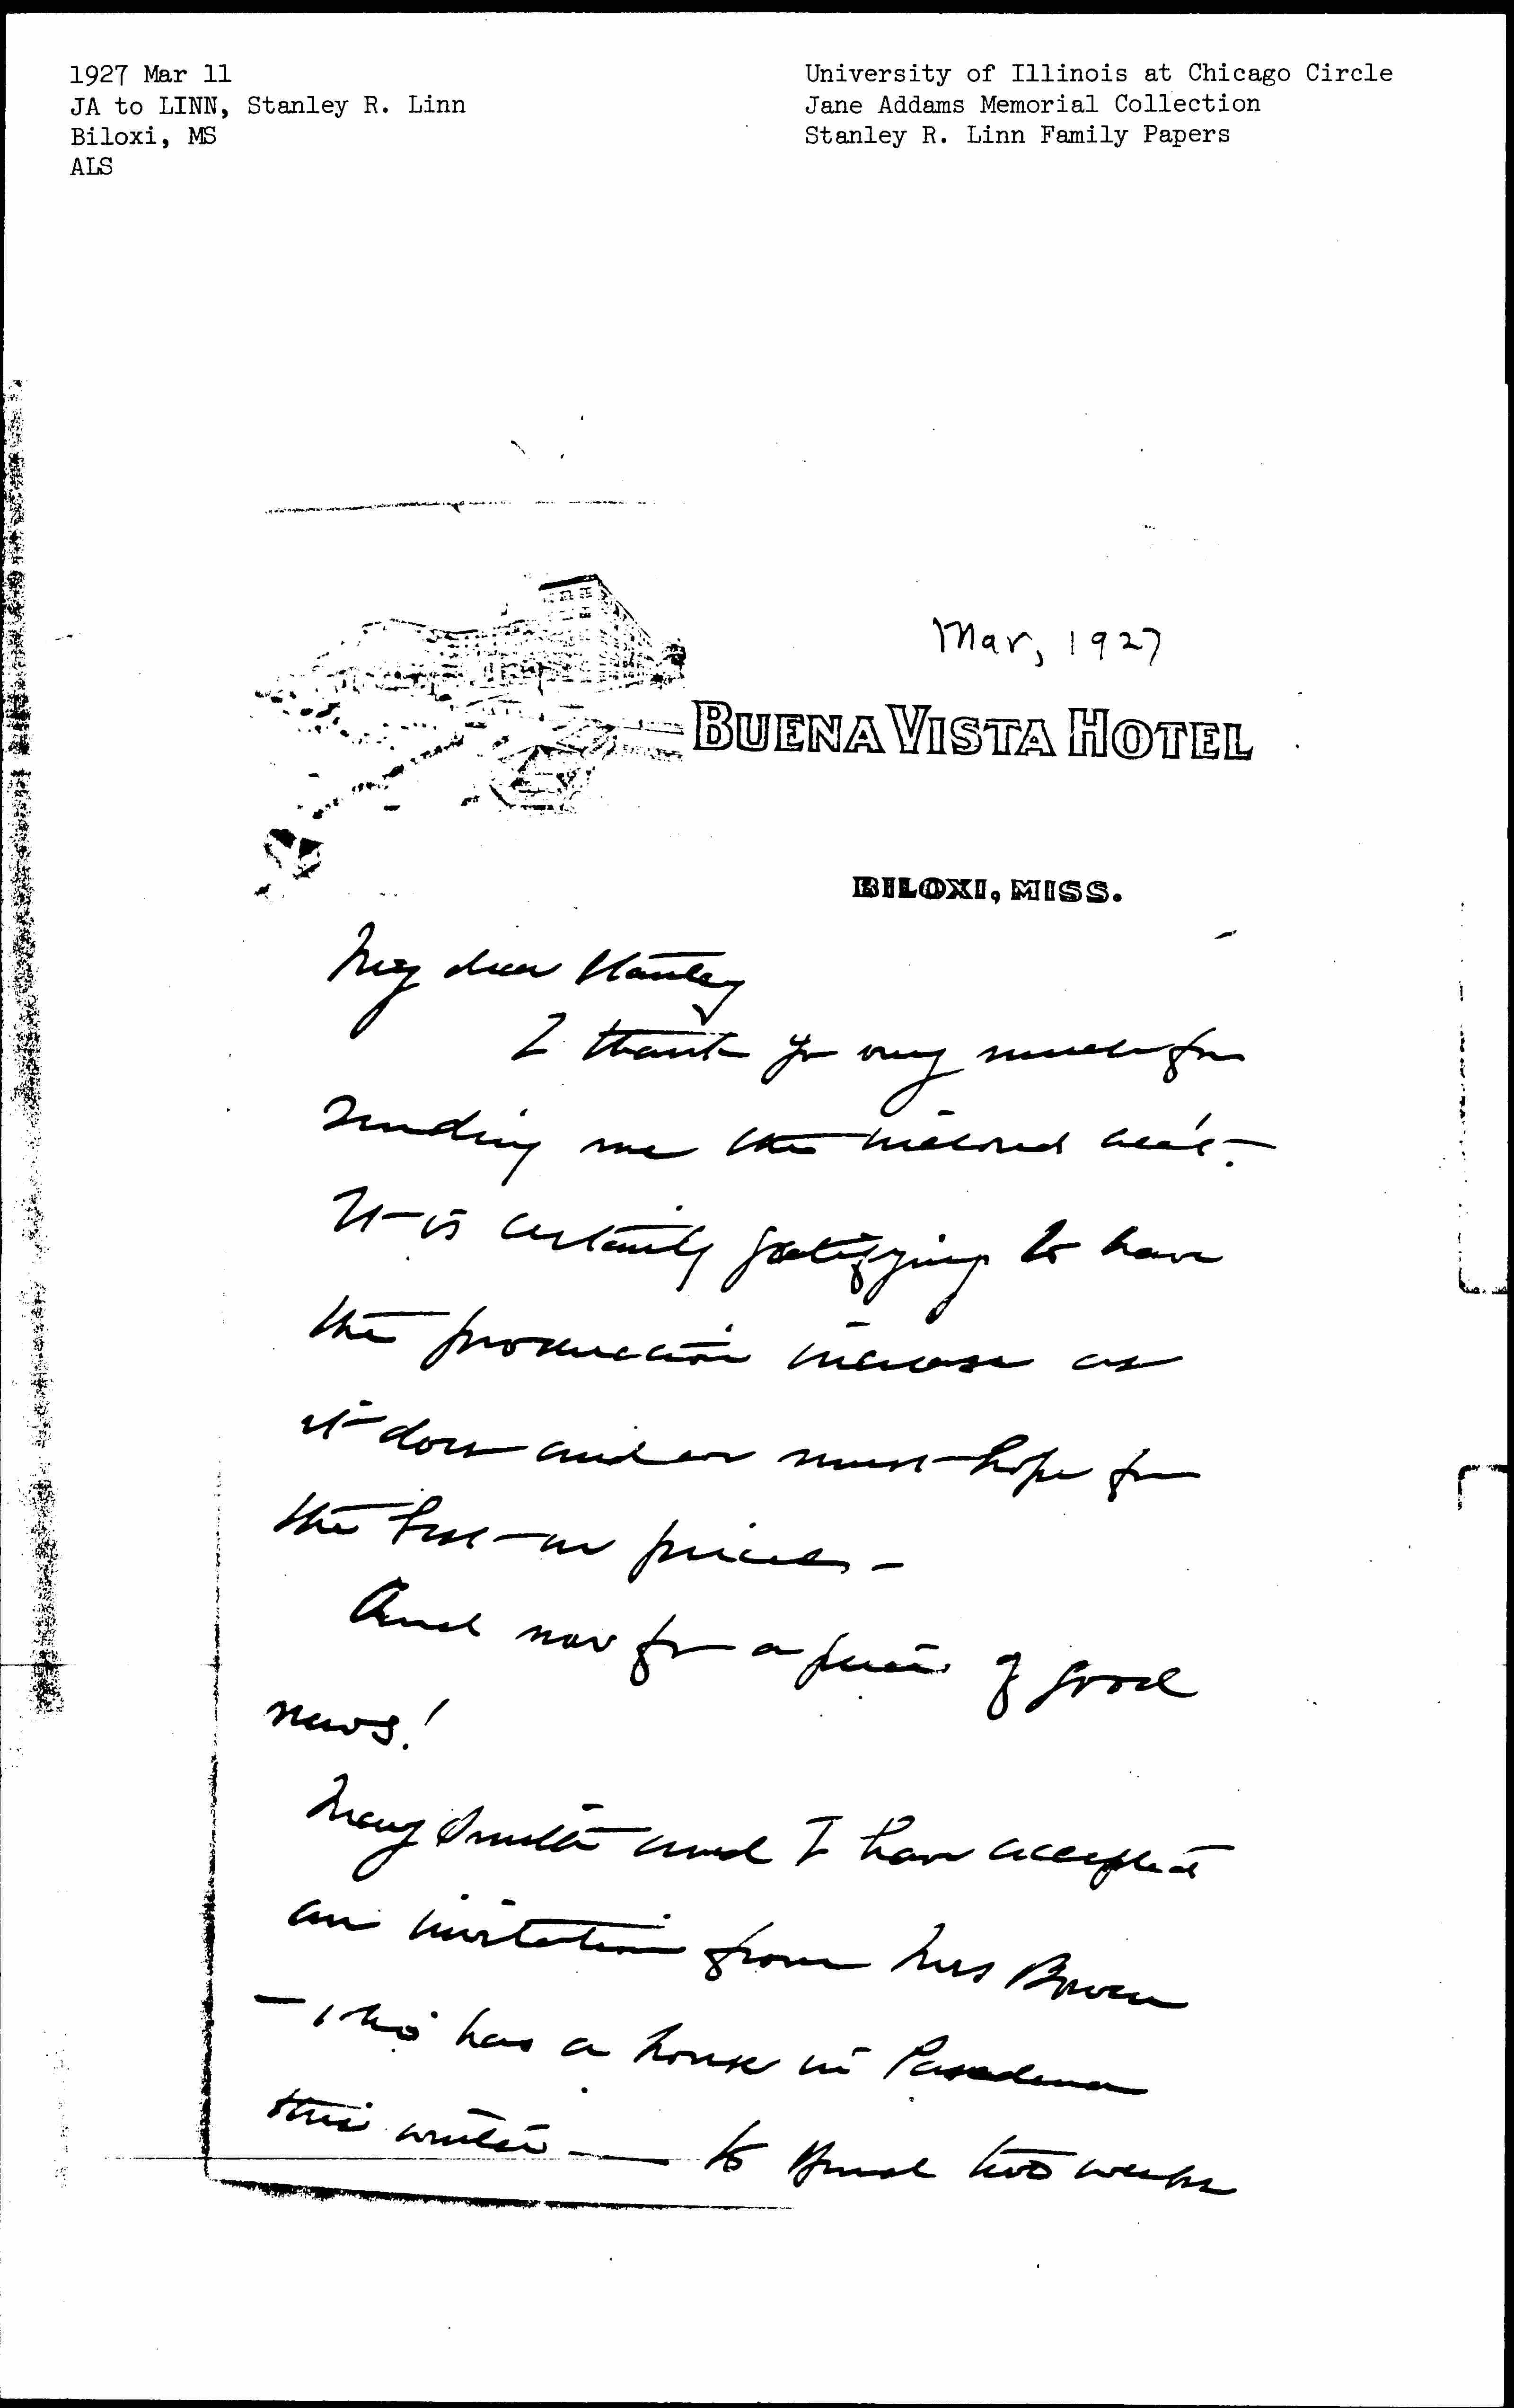 1927 Mar 11
JA to LINN, Stanley R. Linn
Biloxi, MS
ALS
University of Illinois at Chicago Circle
Jane Addams Memorial Collection
Stanley R. Linn Family Papers
Mar, 1927
BUENA VISTA HOTEL
BILOXI, MISS.
My dear Stanley
I thank you very much for
sending me the acc't.
It is certainly gratifying to have
the production increase as
it does and we must hope for
the best in prices -
And now for a piece of good
news!
Mary Smith and I have accepted
an invitation from Mrs Bowen
- who has a house in Pasadena
this winter - to spend two weeks